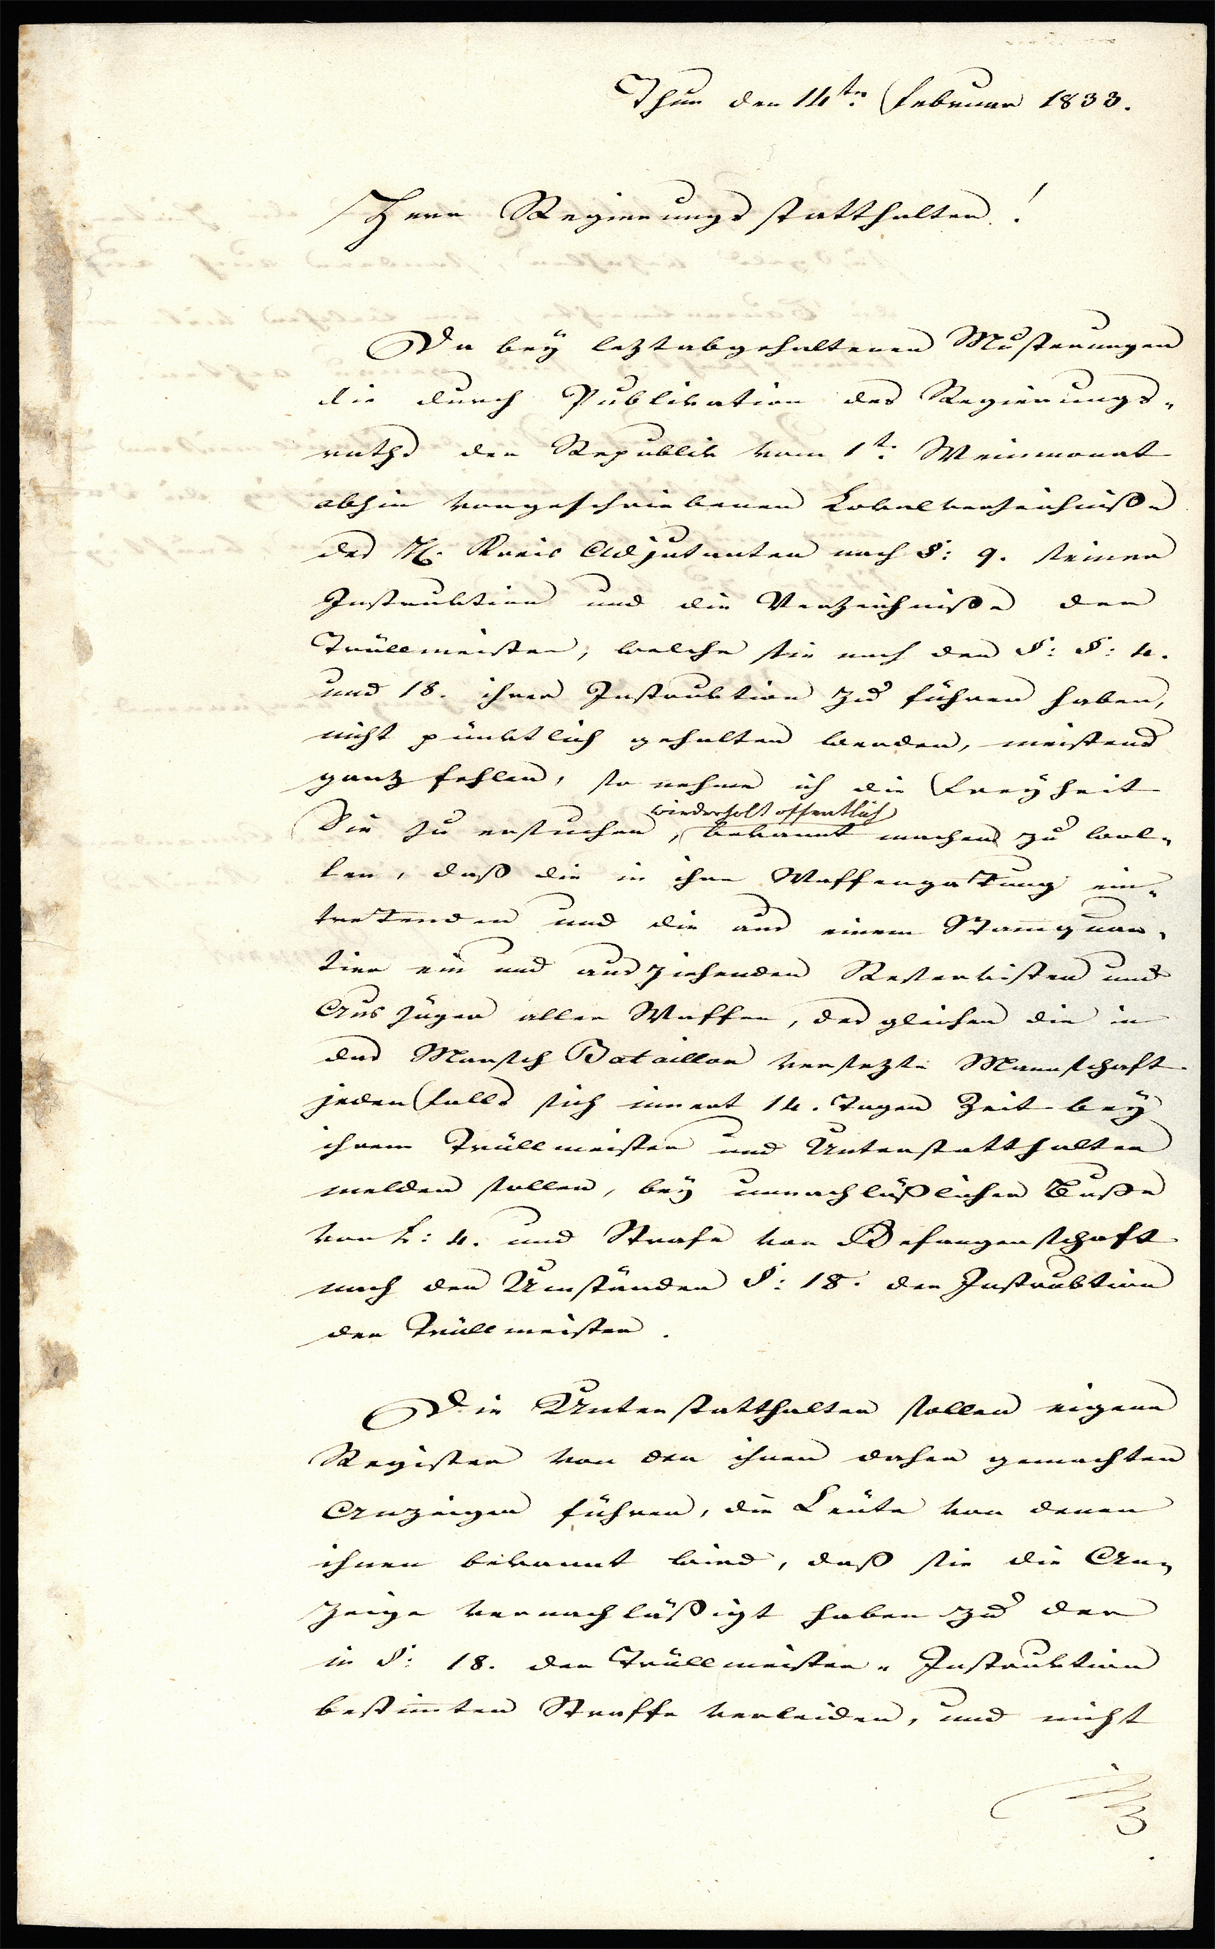 Thun den 14ten. Februar 1833.
Herr Regierungsstatthalter!
Da bey leztabgehaltenen Musterungen
die durch Publikation des Regierungs-
raths der Republik vom 1t. Weinmonat
abhin vorgeschriebenen Lokalverzeichniße
des H. Kreis Adjutanten nach §: 9. seiner
Instruktion und die Verzeichniße der
Trüllmeister, welche sie nach den §: §: 4.
und 18. ihrer Instruktion zu führen haben,
nicht pünktlich gehalten werden, meistens
ganz fehlen, so nehme ich die Freyheit
Sie zu ersuchen, wiederholt offentlich bekannt machen zu wol-
len, daß die in ihre Waffengattung ein-
tretenden und die aus einem Stamquar-
tier ein und ausziehenden Reservisten und
Auszüger aller Waffen, des gleichen die in
das Marsch Bataillon versezte Mannschaft
jeden falls sich innert 14. Tagen Zeit bey
ihrem Trüllmeister und Unterstatthalter
melden sollen, bey unnachläßlicher Buße
von L: 4. und Strafe von Gefangenschaft
nach den Umständen §: 18. der Instruktion
der Trüllmeister.
Die Unterstatthalter sollen eigene
Register von den ihnen daher gemachten
Anzeigen führen, die Leüte von denen
ihnen bekannt wird, daß sie die An-
zeige vernachläßigt haben zu der
in §: 18. der Trüllmeister-Instruktion
bestimten Straffe verleiden, und nicht